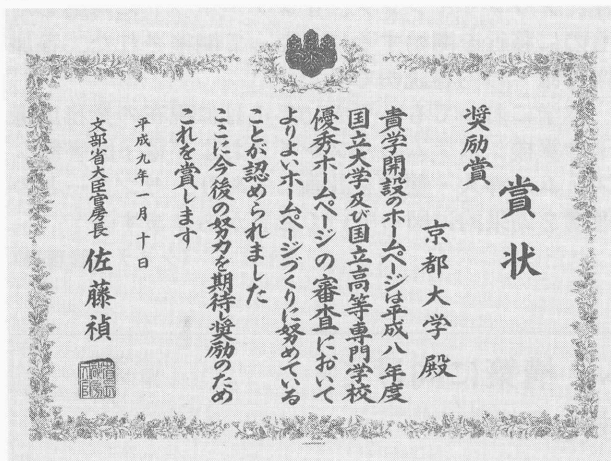 賞状
奨励賞
京都大学殿
貴学開設のホームページは平成八年度
国立大学及び国立高等専門学校
優秀ホームページの審査において
よりよいホームページづくりに努めている
ことが認められました
ここに今後の努力を期待し奨励のため
これを賞します
平成九年一月十日
文部省大臣官房長 佐藤禎